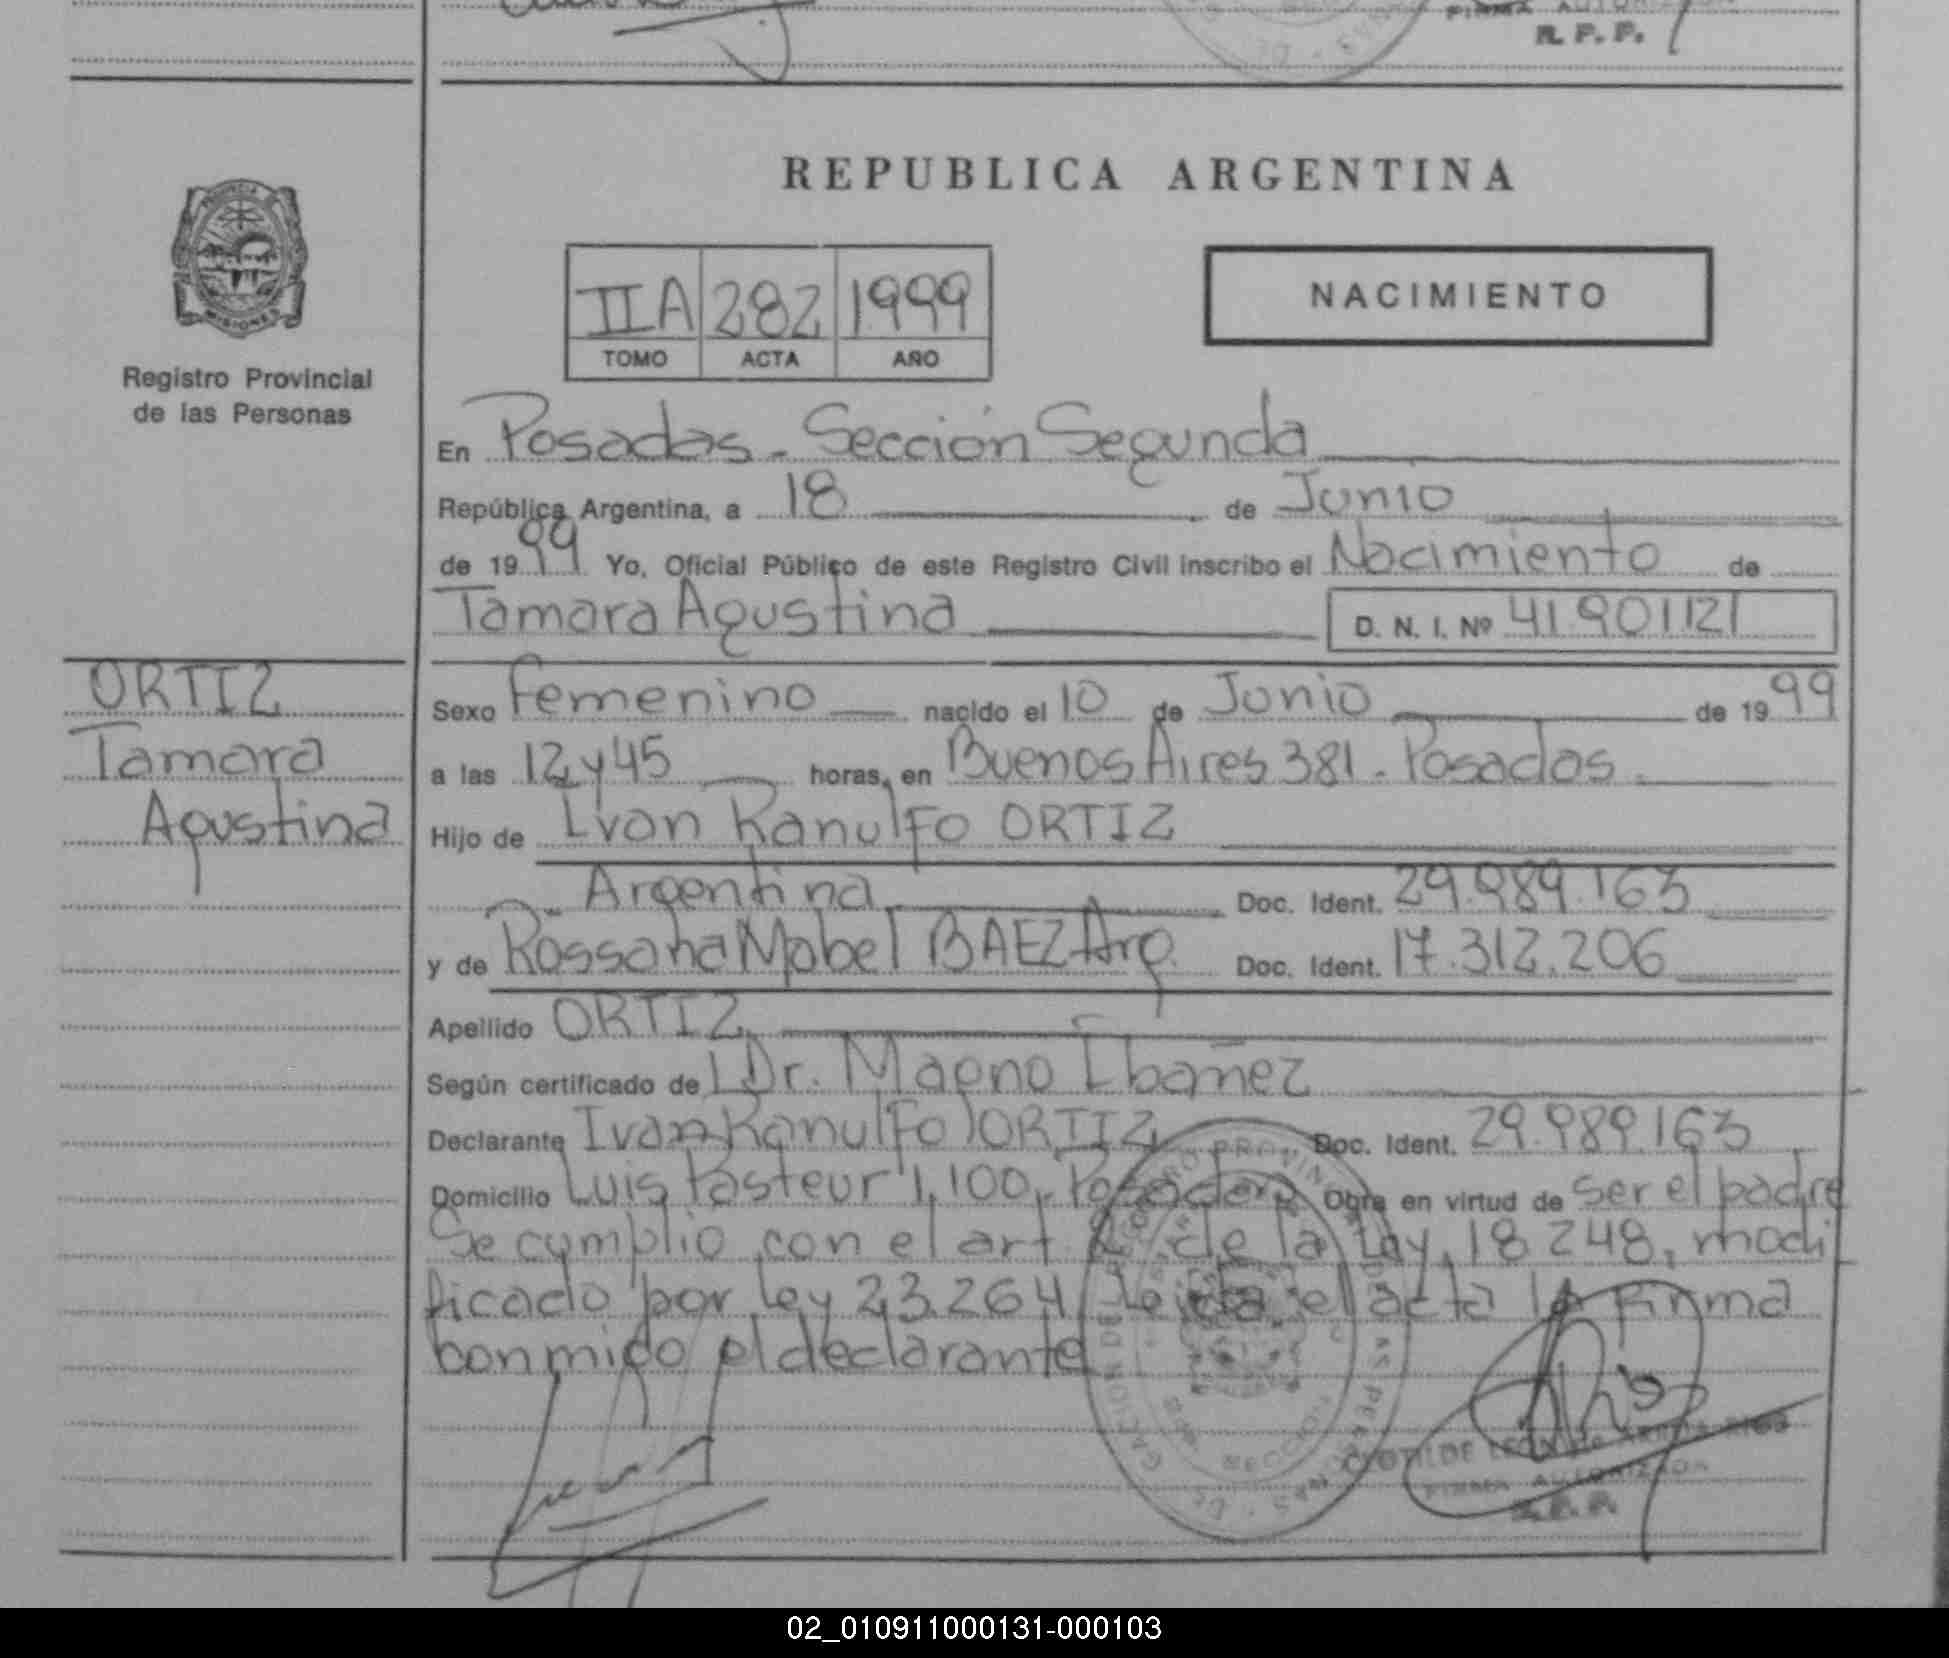 FIRMA AUTORIZADA
R. P. P.
REPUBLICA ARGENTINA
PROVINCIA
MISIONES
Registro Provincial
de las Personas
II A 282 1999
TOMO ACTA AÑO
NACIMIENTO
En Posadas - Sección Segunda
República Argentina, a 18 de Junio
de 1999 Yo, Oficial Público de este Registro Civil inscribo el Nacimiento de
Tamara Agustina D. N. I. Nº 41.901.121
ORTIZ
Tamara
Agustina
Sexo Femenino nacido el 10 de Junio de 1999
a las 12 y 45 horas, en Buenos Aires 381 - Posadas.
Hijo de Ivan Ranulfo ORTIZ
Argentina Doc. Ident. 29.989.163
y de Rossana Mabel BAEZ Arg. Doc. Ident. 17.312.206
Apellido ORTIZ
Según certificado de Dr. Magno Ibañez
Declarante Ivan Ranulfo ORTIZ Doc. Ident. 29.989.163
Domicilio Luis Pasteur 1.100, Posadas Obra en virtud de ser el padre
Se cumplio con el art de la Ley 18 248, modi
ficado por ley 23.264 Leida el acta la firma
conmigo el declarante
CLOTILDE LEON de
FIRMA AUTORIZADA
R. P. P.
02_010911000131-000103